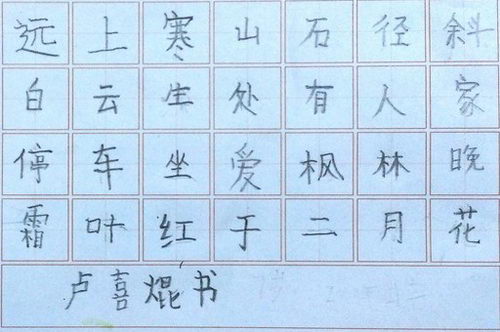 远上寒山石径斜
白云生处有人家
停车坐爱枫林晚
霜叶红于二月花
卢喜焜书